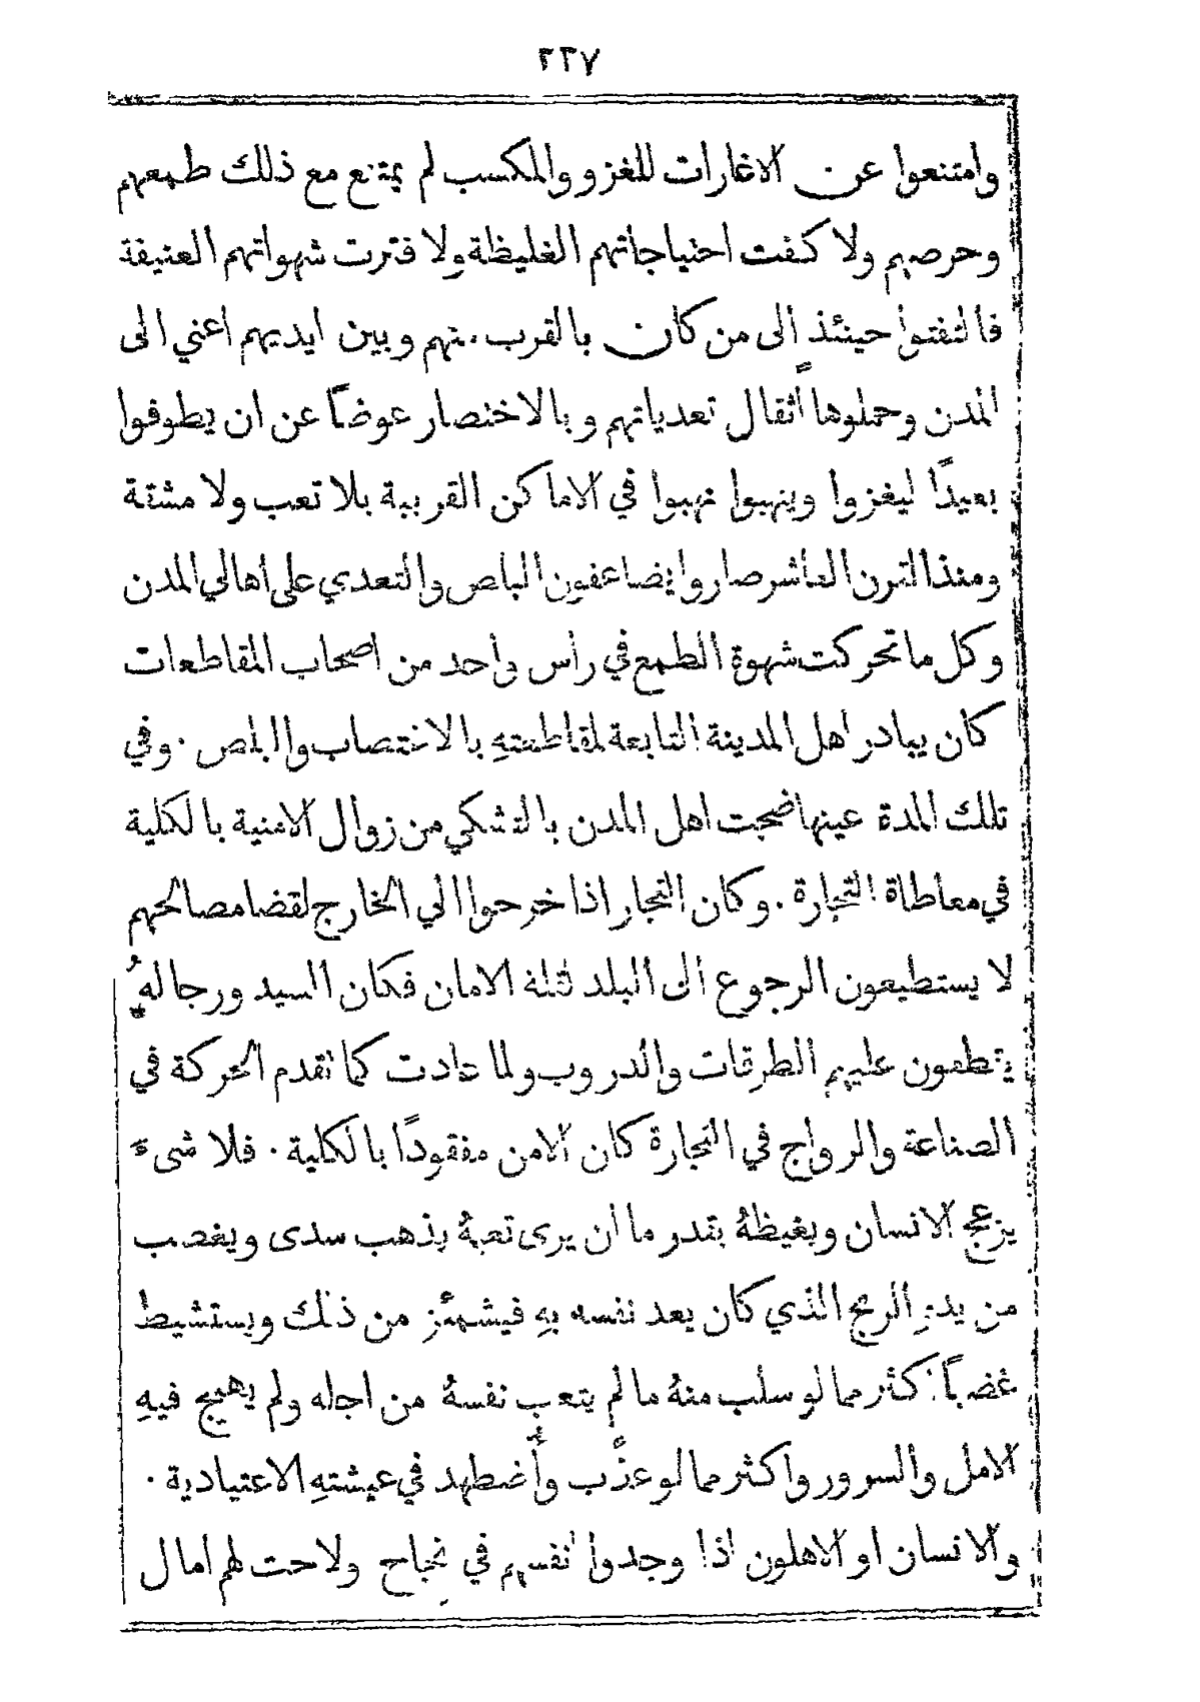 ٢٢٧
وامتنعوا عن الاغارات للغزو والمكسب لم يمتنع مع ذلك طمعهم
وحرصهم ولا كفت احتياجاتهم الغليظة ولا فترت شهواتهم العنيفة
فالتفتوا حينئذ الى من كان بالقرب منهم وبين ايديهم اعني الى
المدن وحملوها أثقال تعدياتهم وبالاختصار عوضاً عن ان يطوفوا
بعيدًا ليغزوا وينهبوا نهبوا في الاماكن القريبة بلا تعب ولا مشقة
ومنذ القرن العاشر صاروا يضاعفون البلص والتعدي على اهالي المدن
وكل ما تحركت شهوة الطمع في رأس واحد من اصحاب المقاطعات
كان يبادر اهل المدينة التابعة لمقاطعتهِ بالاغتصاب والبلص . وفي
تلك المدة عينها ضجت اهل المدن بالتشكي من زوال الامنية بالكلية
في معاطاة التجارة . وكان التجار اذا خرجوا الى الخارج لقضا مصالحهم
لا يستطيعون الرجوع الى البلد لقلة الامان فكان السيد ورجالهُ
يقطعون عليهم الطرقات والدروب ولما عادت كما تقدم الحركة في
الصناعة والرواج في التجارة كان الامن مفقودًا بالكلية . فلا شىء
يزعج الانسان ويغيظهُ بقدر ما أن يرى تعبهُ يذهب سدى ويغصب
من يدهِ الربح الذي كان يعد نفسه بهِ فيشمئز من ذلك ويستشيط
غضباً اكثر مما لو سلب منهُ ما لم يتعب نفسهُ من اجله ولم يهيج فيهِ
الامل والسرور واكثر مما لو عذّب وأُضطهد في عيشتهِ الاعتيادية .
والانسان او الاهلون اذا وجدوا انفسهم في نجاح ولاحت لهم امال